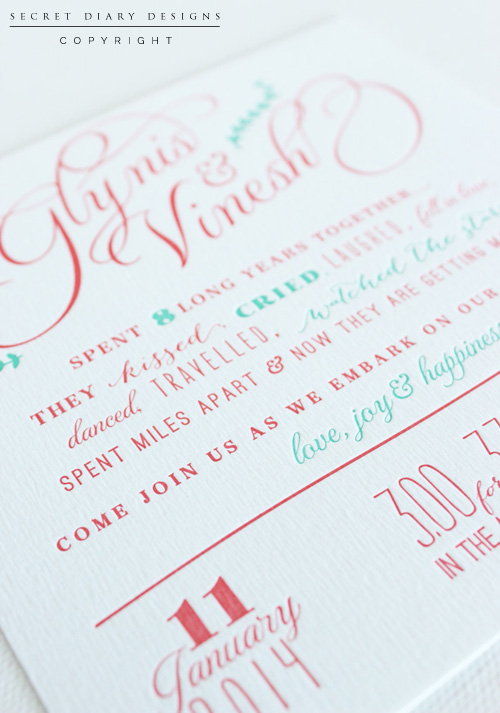 SECRET DIARY DESIGNS
COPYRIGHT
Glynis
&
Vinesh
SPENT 8 LONG YEARS TOGETHER...
THEY kissed, CRIED, LAUGHED, fell in love,
danced, TRAVELLED, watched the
SPENT MILES APART & NOW THEY ARE GETTING
COME JOIN US AS WE EMBARK ON OUR
love, joy & happiness
3.00 for
IN THE
11
January
2014